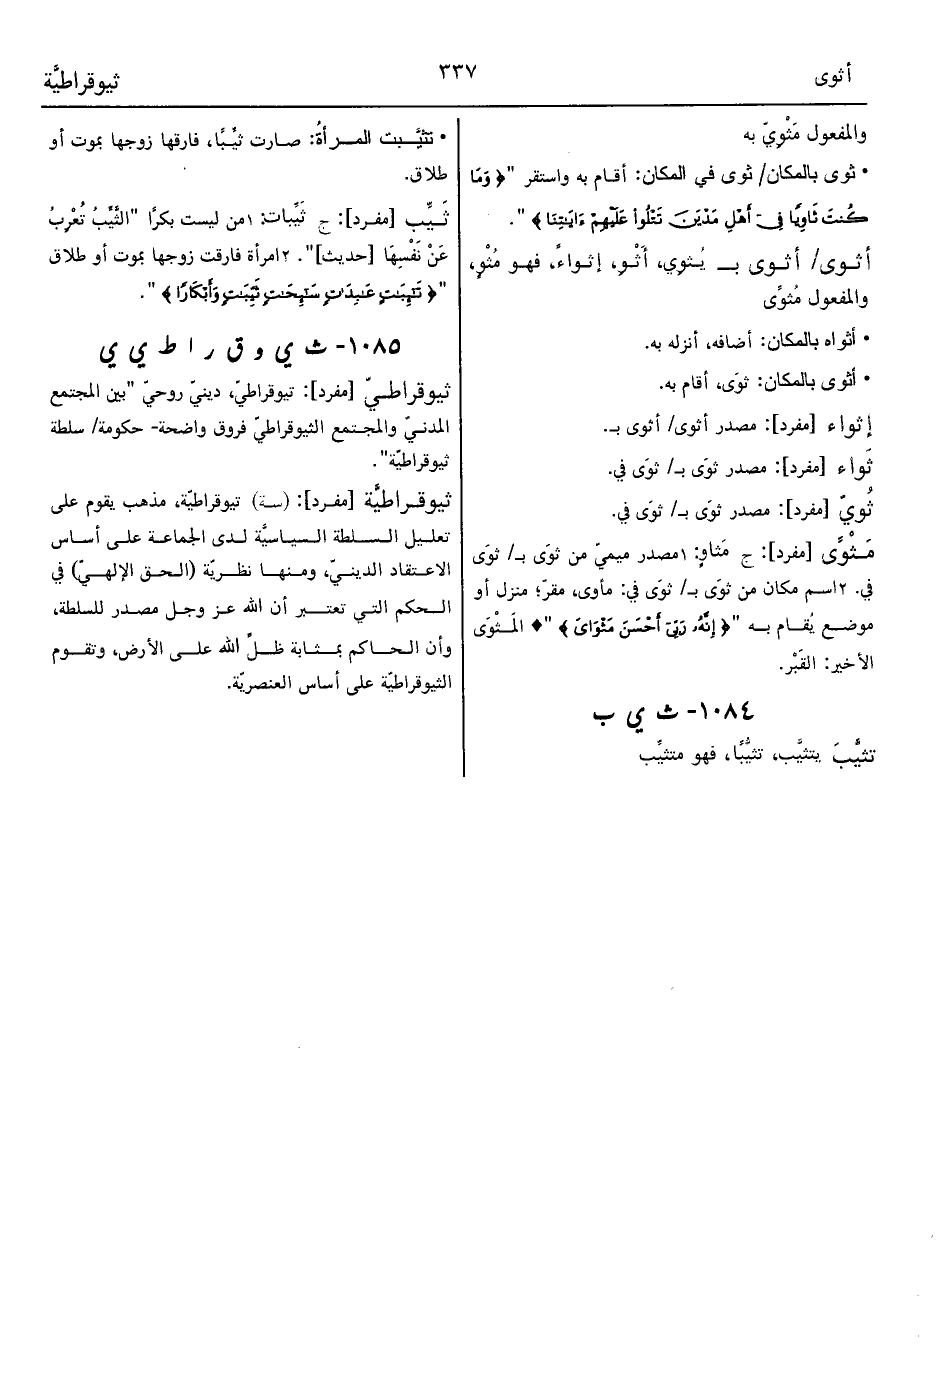 أثوى
٣٣٧
ثيوقراطيَّة
والمفعول مَثْوِيّ به
• ثوى بالمكان/ ثوى في المكان: أقام به واستقر "﴿ وَمَا
كُنتَ ثَاوِيًا فِي أَهْلِ مَدْيَنَ تَتْلُواْ عَلَيْهِمْ ءَايَٰتِنَا ﴾ ".
أثـوى/ أثـوى بـ يُـثوِي، أَثْـوِ، إثـواءً، فهـو مُثْوٍ،
والمفعول مُثوًى
• أثواه بالمكان: أضافه، أنزله به.
• أثوى بالمكان: ثوَى، أقام به.
إثواء [مفرد]: مصدر أثوى/ أثوى بـ.
ثَواء [مفرد]: مصدر ثوَى بـ/ ثوَى في.
ثُويّ [مفرد]: مصدر ثوَى بـ/ ثوَى في.
مَـثْوًى [مفرد]: ج مَثاوٍ: ١مصدر ميميّ من ثوَى بـ/ ثوَى
في. ٢اسم مكان من ثوَى بـ/ ثوَى في: مأوى، مقرّ؛ منزل أو
موضـع يُقـام بـه "﴿ إِنَّهُۥ رَبِّيٓ أَحْسَنَ مَثْوَايَ ﴾ "♦ المَـثْوَى
الأخير: القَبْر.
١٠٨٤- ث ي ب
تثيَّبَ يتثيَّب، تثيُّبًا، فهو متثيِّب
• تثيَّـبت المـرأةُ: صـارت ثيِّبًا، فارقها زوجها بموت أو
طلاق.
ثَـيِّب [مفرد]: ج ثيِّبات: ١من ليست بكرًا "الثَّيِّبُ تُعْرِبُ
عَنْ نَفْسِهَا [حديث]". ٢امرأة فارقت زوجها بموت أو طلاق
"﴿ تَٰٓئِبَٰتٍ عَٰبِدَٰتٍ سَٰٓئِحَٰتٍ ثَيِّبَٰتٍ وَأَبْكَارًا ﴾ ".
١٠٨٥- ث ي و ق ر ا ط ي ي
ثيوقراطيّ [مفرد]: تيوقراطيّ، دينيّ روحيّ "بين المجتمع
المدنيّ والمجـتمع الثيوقراطيّ فروق واضحة- حكومة/ سلطة
ثيوقراطيّة".
ثيوقـراطيَّة [مفـرد]: (سـة) تيوقراطيّة، مذهب يقوم على
تعلـيل السـلطة السـياسيَّة لـدى الجماعـة علـى أسـاس
الاعـتقاد الدينـيّ، ومـنهـا نظـريّة (الـحق الإلهـيّ) في
الـحكم التـي تعتـبر أن الله عـز وجـل مصـدر للسلطة،
وأن الـحـاكم بمـثابة ظـلِّ الله علـى الأرض، وتقـوم
الثيوقراطيّة على أساس العنصريّة.